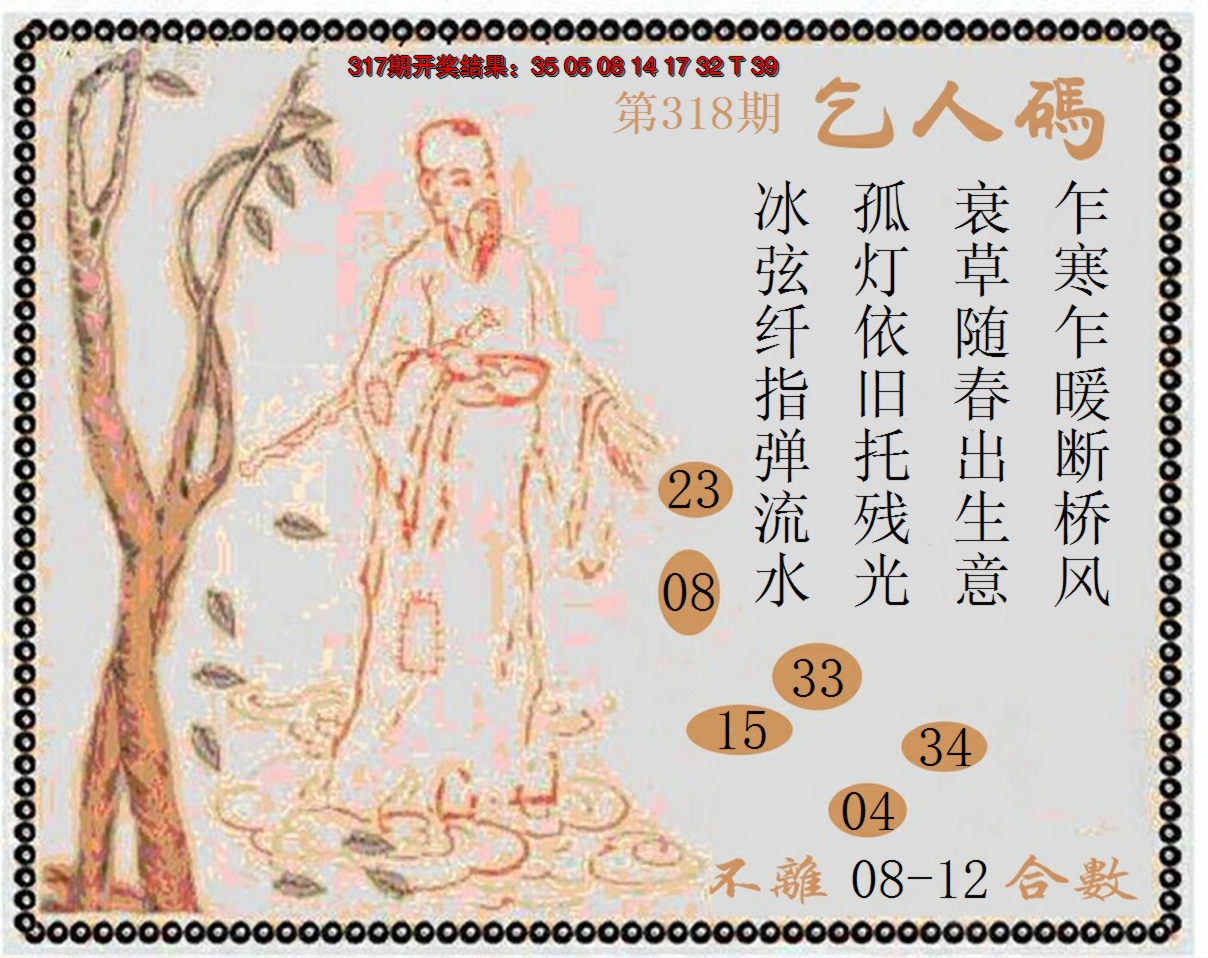 317期开奖结果：35 05 08 14 17 32 T 39
第318期 乞人碼
乍寒乍暖断桥风
衰草随春出生意
孤灯依旧托残光
冰弦纤指弹流水
23
08
33
15
34
04
不離 08-12 合數